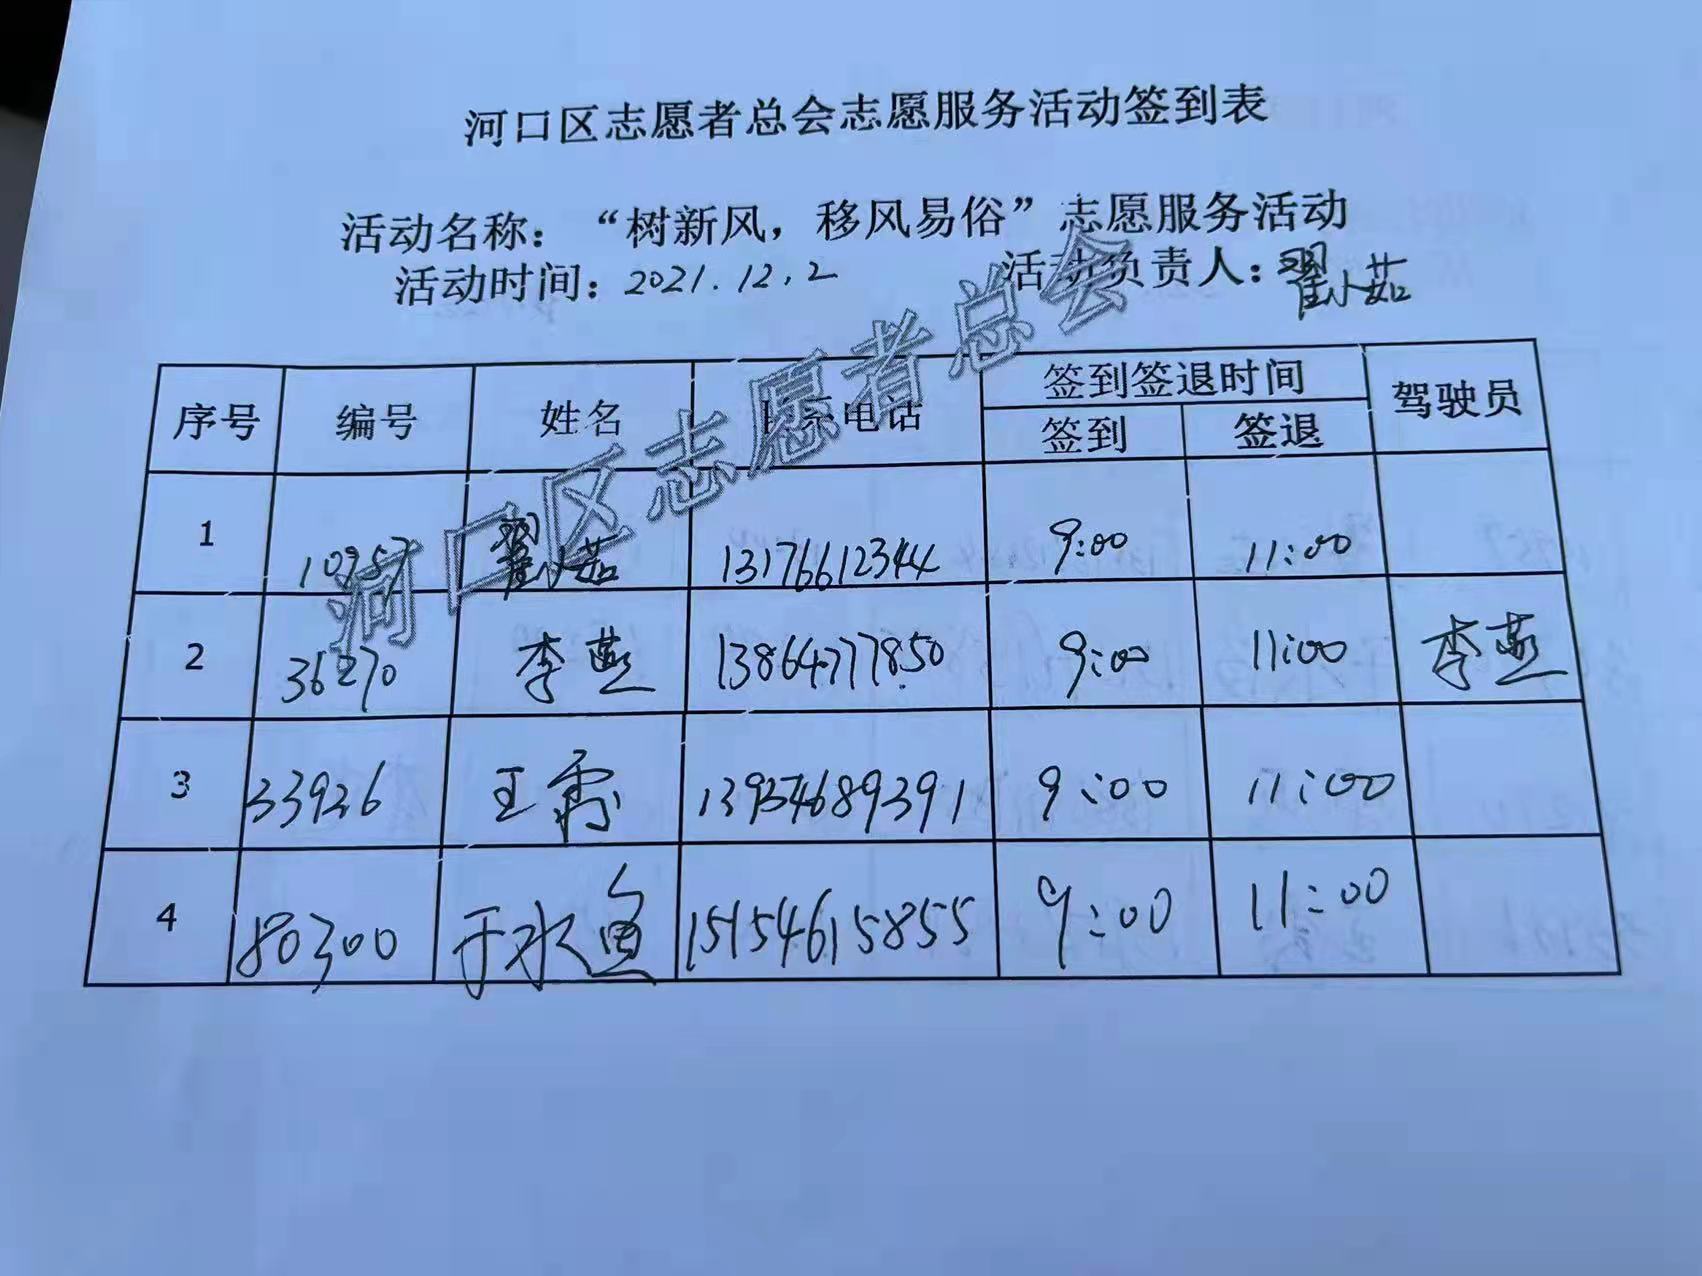 河口区志愿者总会志愿服务活动签到表
活动名称：“树新风，移风易俗”志愿服务活动
活动时间：2021.12.2 活动负责人：翟小茹
序号 编号 姓名 联系电话 签到签退时间 驾驶员
签到 签退
1 10957 翟小茹 13176612344 9:00 11:00
2 36270 李燕 13864777850 9:00 11:00 李燕
3 33926 王霞 13934689391 9:00 11:00
4 80300 于水鱼 15154615855 9:00 11:00
河口区志愿者总会